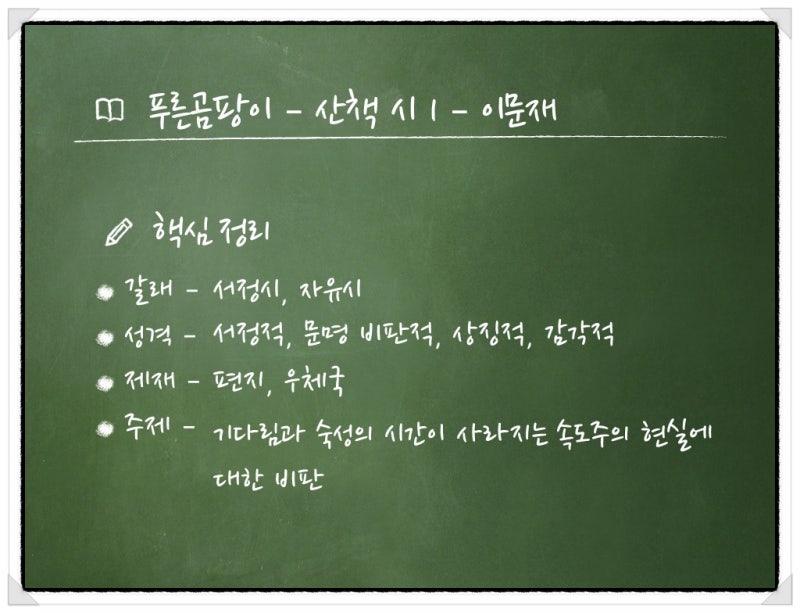 푸른곰팡이 - 산책 시 1 - 이문재
핵심 정리
갈래 - 서정시, 자유시
성격 - 서정적, 문명 비판적, 상징적, 감각적
제재 - 편지, 우체국
주제 - 기다림과 숙성의 시간이 사라지는 속도주의 현실에
대한 비판